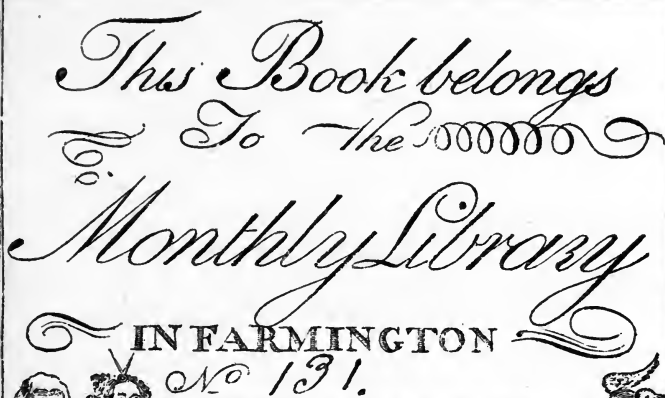 This Book belongs
To the
Monthly Library
IN FARMINGTON
No 131.